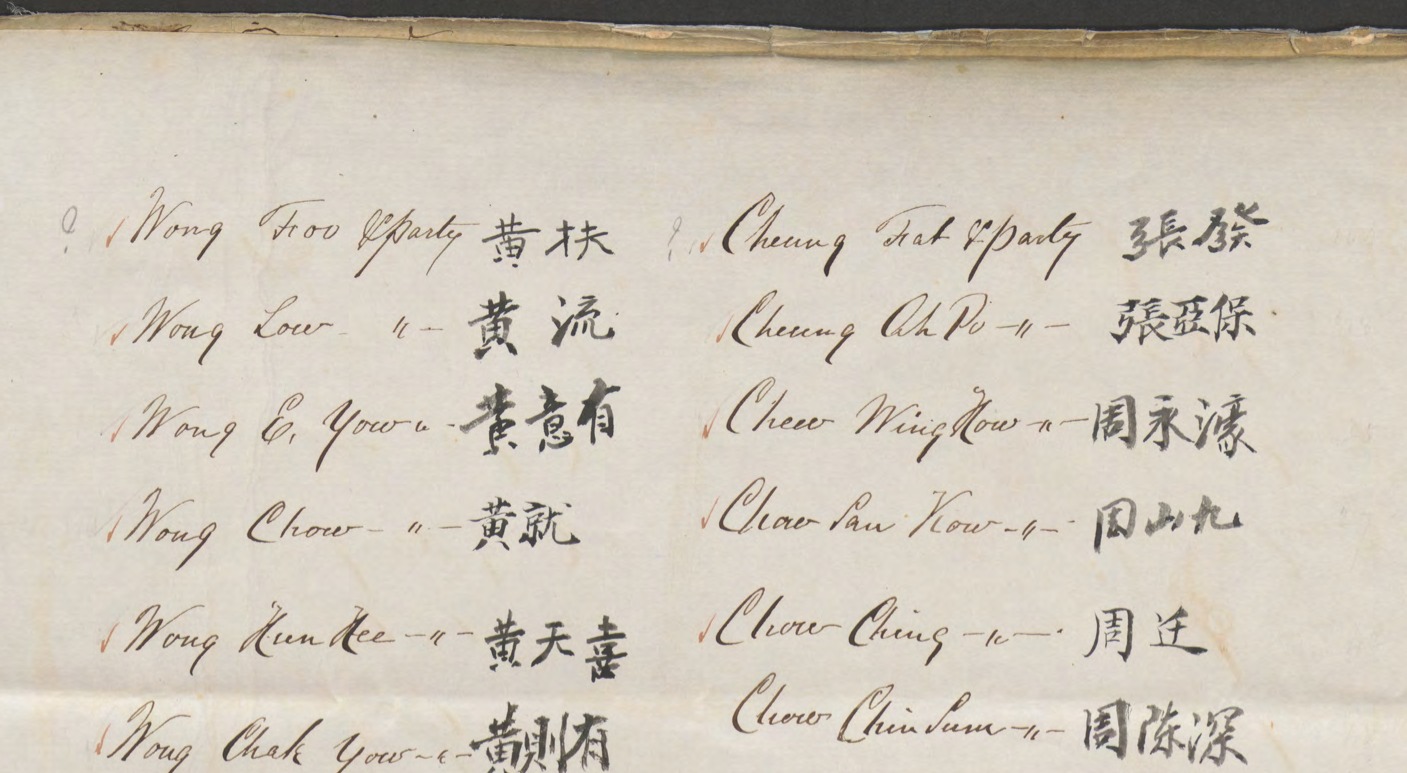 ? Wong Foo & party 黄扶
Wong Low " 黄流
Wong E. Yow " 黄意有
Wong Chow " 黄就
Wong Hun Hee " 黄天喜
Wong Chak Yow " 黄則有
? Cheung Fat & party 張發
Cheung Ah Po " 張亞保
Chew Wing How " 周永濠
Chow San Kow " 周山九
Chow Ching " 周
Chow Chin Sum " 周陈深